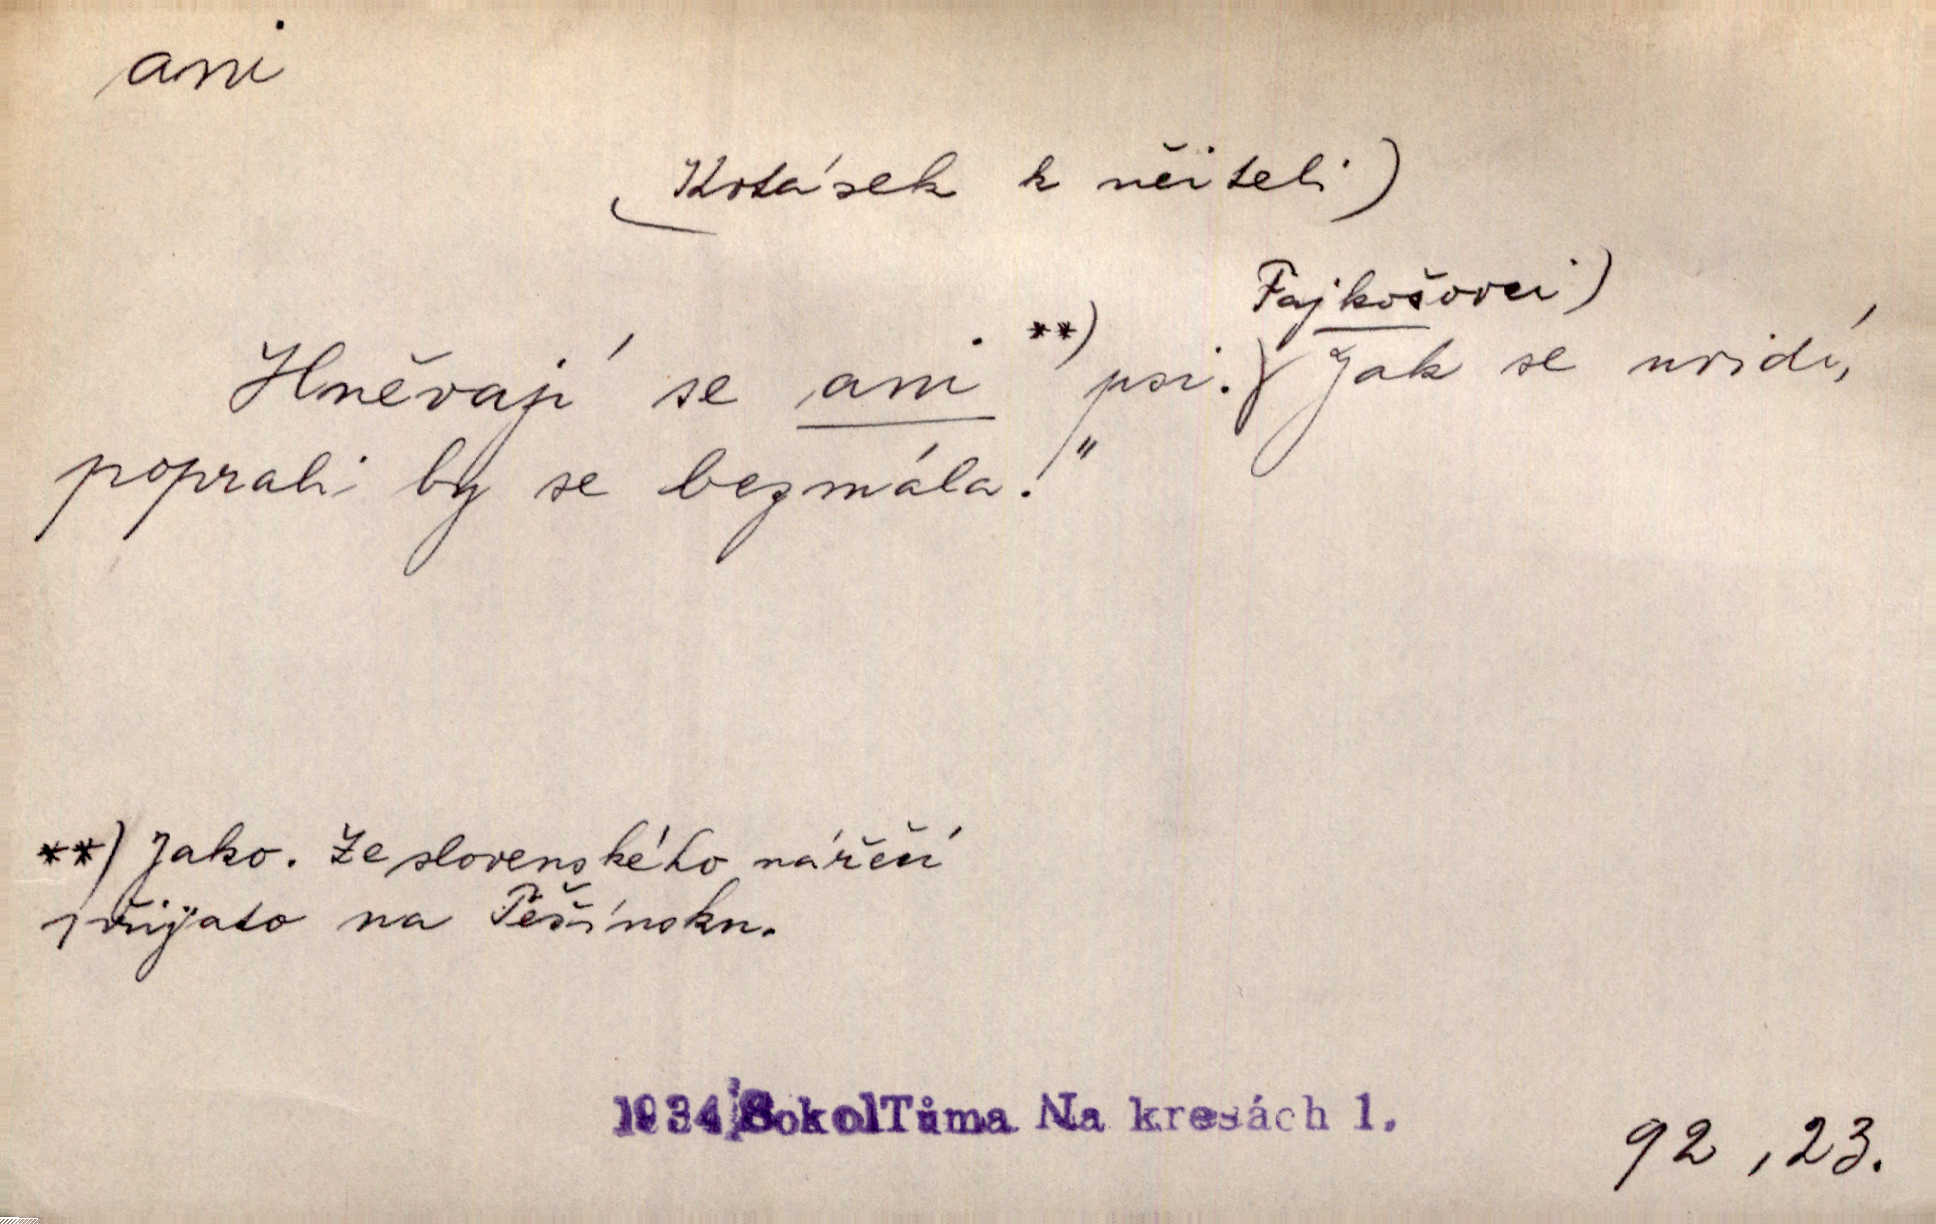 ani
(Kotásek k učiteli)
Fajkošovci)
Hněvají se ani **) psi.) Jak se uvidí,
poprali by se bezmála!"
**) Jako. Ze slovenského nářečí
přijato na Těšínsku.
1934 SokolTůma Na kresách 1.
92, 23.